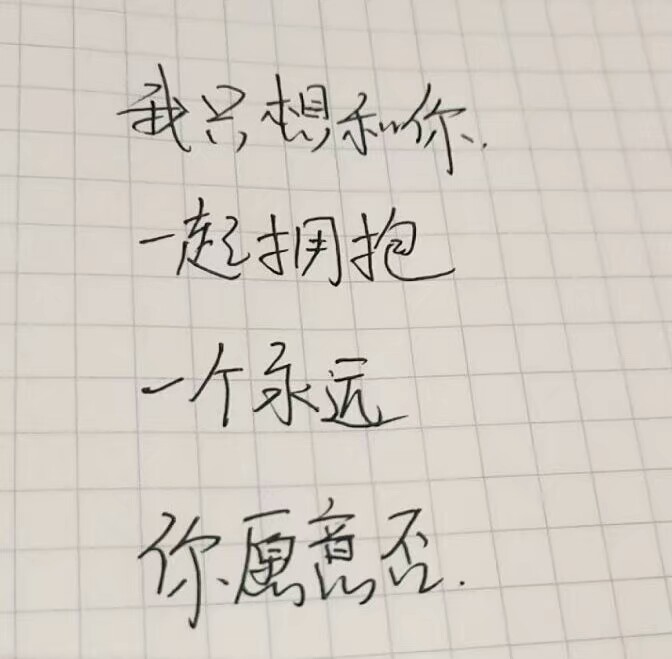 我只想和你.
一起拥抱
一个永远
你愿意否.